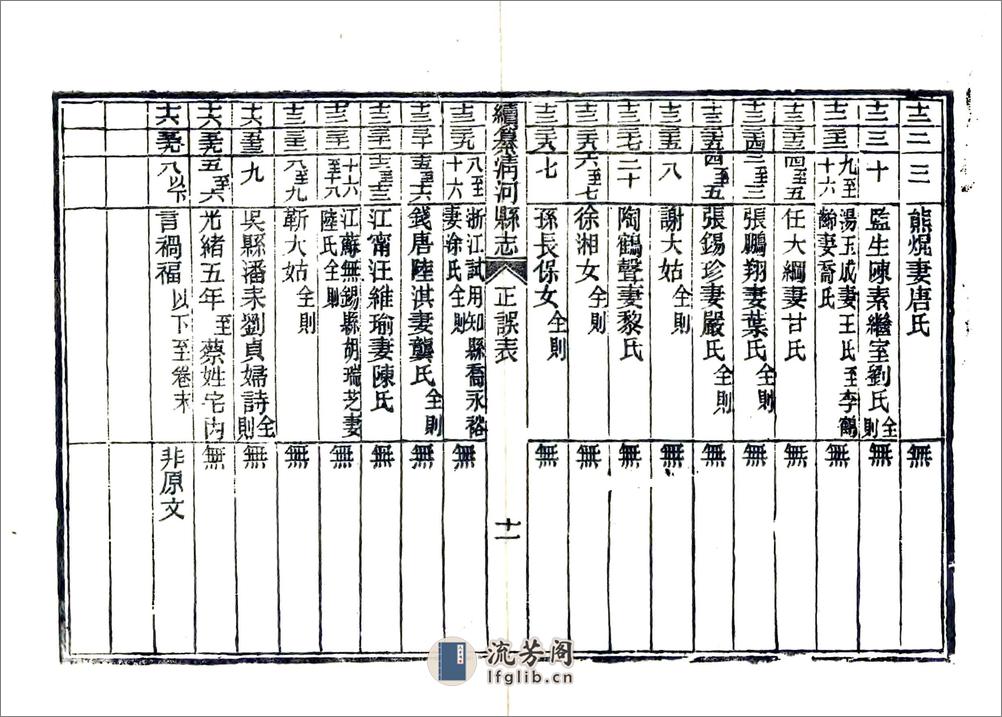 十二 二 三 熊焜妻唐氏 無
十二 三 十 監生陳素繼室劉氏全則 無
十二 二十二 九至十六 湯玉成妻王氏至李鶴齡妻喬氏 無
十二 二十三 四至五 任大綱妻甘氏 無
十二 二十四 三至三 張鵬翔妻葉氏全則 無
十二 二十五 四至五 張錫珍妻嚴氏全則 無
十二 二十五 八 謝大姑全則 無
十二 二十七 二十 陶鶴聲妻黎氏 無
十二 二十九 六至七 徐湘女全則 無
十二 二十九 七 孫長保女全則 無
續纂清河縣志 正誤表 十一
十二 二十九 八至十六 浙江試用知縣喬永裕妻涂氏全則 無
十二 三十 十五至十六 錢唐陸淇妻龔氏全則 無
十二 三十 江甯汪維瑜妻陳氏 無
十二 三十 十六至十九 江蘇無錫縣胡瑞芝妻陸氏全則 無
十二 三十二 八至九 靳大姑全則 無
十六 九 吳縣潘耒劉貞婦詩全則 無
十六 五至六 光緒五年至蔡姓宅內 無
十六 八以下 言禍福以下至卷末 非原文
流芳阁
lfglib.cn